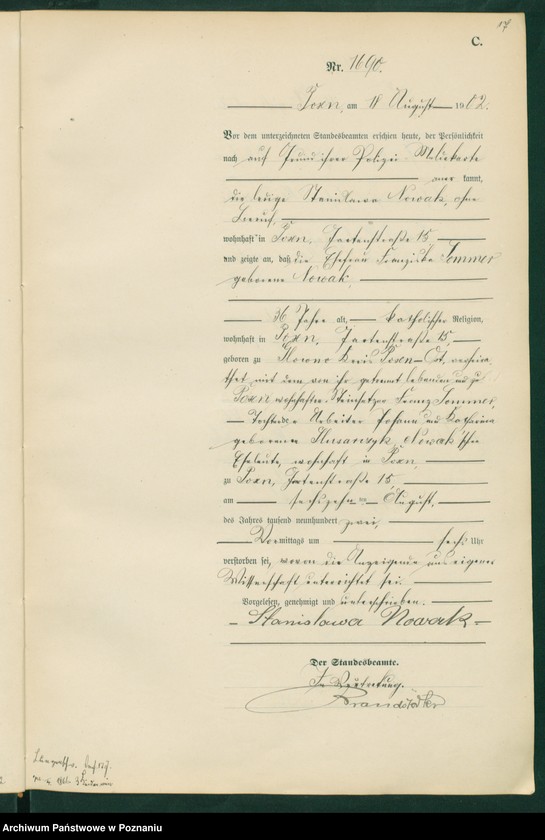 17
C.
Nr. 1690.
Posen, am 18 August 1902.
Vor dem unterzeichneten Standesbeamten erschien heute, der Persönlichkeit
nach auf Grund ihrer Polizei Meldekarte
aner kannt,
die ledige Stanislawa Nowak, ohne
Beruf,
wohnhaft in Posen, Gartenstraße 15
und zeigte an, daß die Ehefrau Franziska Sommer
geborene Nowak,
36 Jahre alt, katholischer Religion,
wohnhaft in Posen, Gartenstraße 15,
geboren zu Kreis Posen-Ost, verheira
thet mit dem von ihr getrennt lebenden und zu
Posen wohnhaften Steinsetzer Franz Sommer,
Tochter der Arbeiter Johann und Katharina
geborenen Nowak'schen
Eheleute, wohnhaft in Posen,
zu Posen, Gartenstraße 15,
am sechszehnten August,
des Jahres tausend neunhundert zwei,
Vormittags um sechs Uhr
verstorben sei, wovon die Anzeigende aus eigener
Wissenschaft unterrichtet sei.
Vorgelesen, genehmigt und unterschrieben.
Stanisława Nowak
Der Standesbeamte.
In Vertretung.
Brandstädter
Archiwum Państwowe w Poznaniu